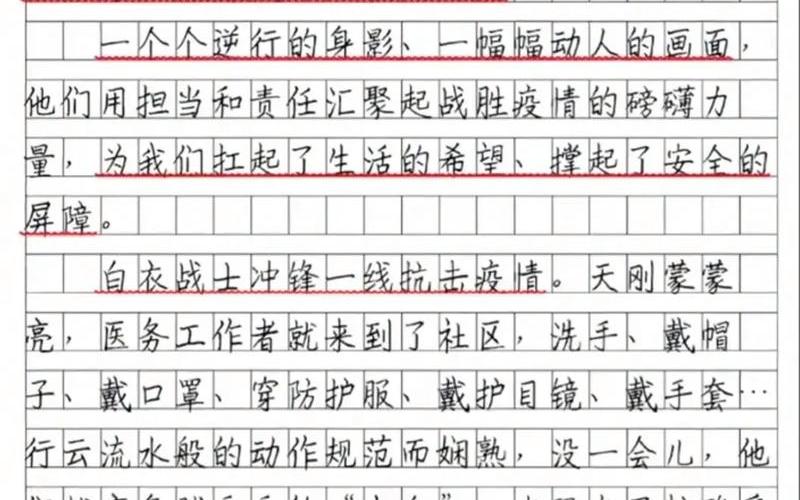 一个个逆行的身影、一幅幅动人的画面，
他们用担当和责任汇聚起战胜疫情的磅礴力
量，为我们扛起了生活的希望、撑起了安全的
屏障。
白衣战士冲锋一线抗击疫情。天刚蒙蒙
亮，医务工作者就来到了社区，洗手、戴帽
子、戴口罩、穿防护服、戴护目镜、戴手套…
行云流水般的动作规范而娴熟，没一会儿，他